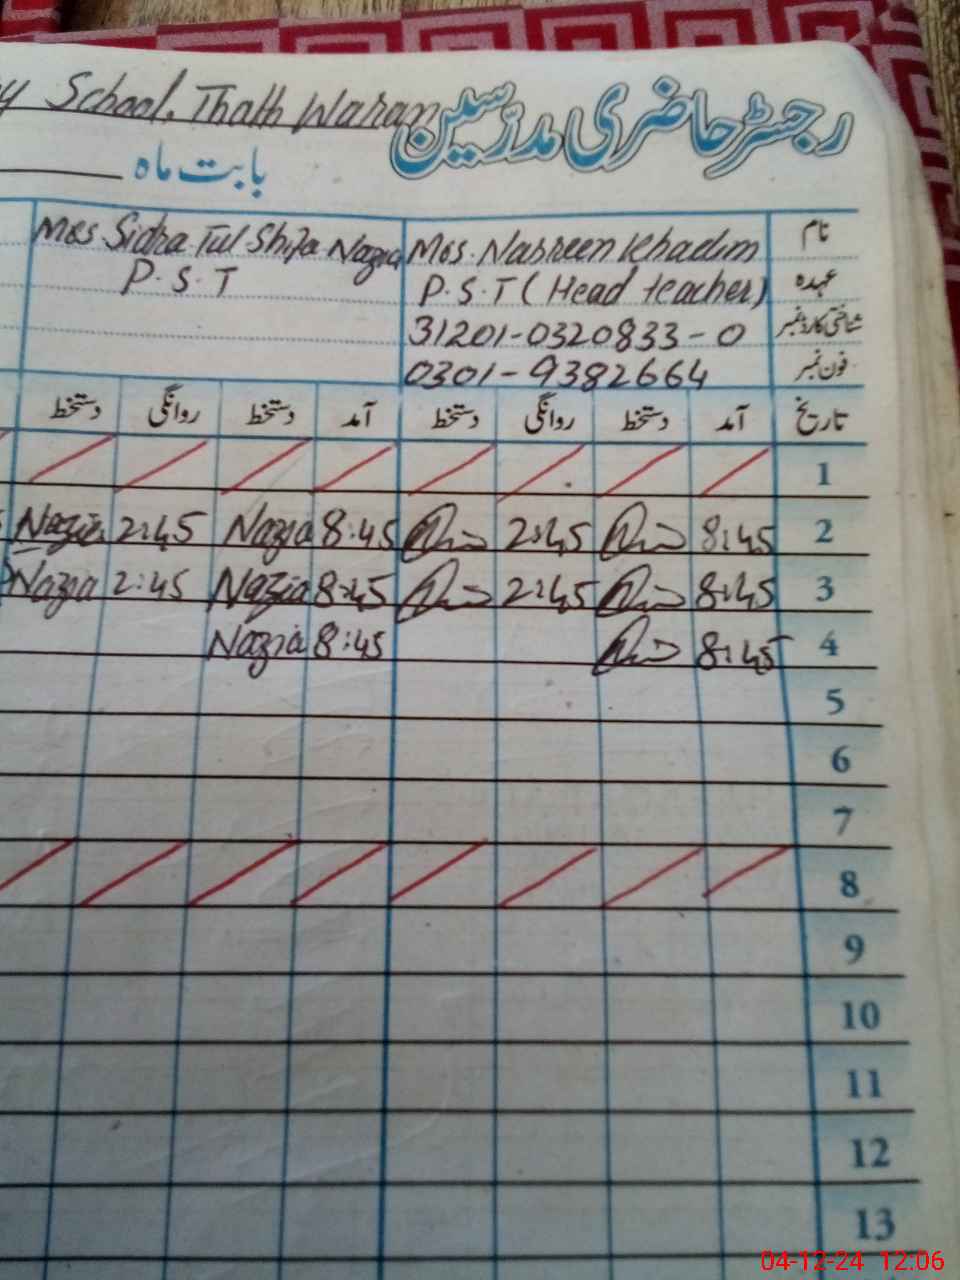 School, Thath Waran
رجسٹر حاضری مدرسین
بابت ماہ
نام Mrs. Nasreen Khadim Mrs Sidra Tul Shifa Nazia
عہدہ P.S.T (Head teacher) P.S.T
شناختی کارڈ نمبر 31201-0320833-0
فون نمبر 0301-9382664
تاریخ آمد دستخط روانگی دستخط آمد دستخط روانگی دستخط
1
2 8:45 2:45 8:45 Nazia 2:45 Nazia
3 8:45 2:45 8:45 Nazia 2:45 Nazia
4 8:45 8:45 Nazia
5
6
7
8
9
10
11
12
13
04-12-24 12:06